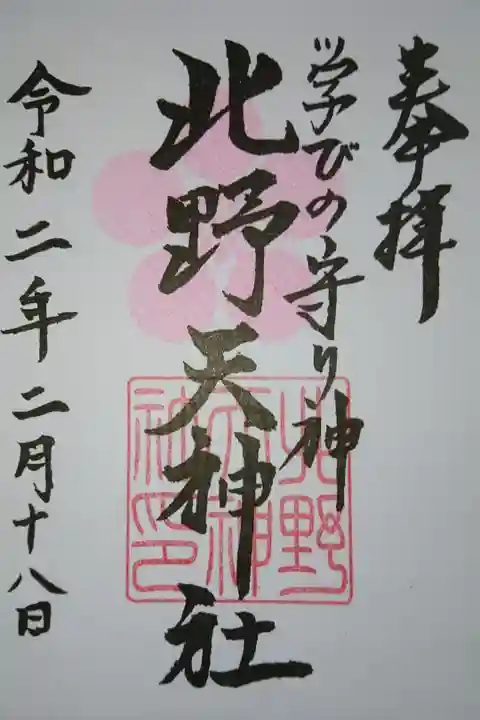 奉拝
学びの守り神
北野天神社
北野
天神
社印
令和二年二月十八日